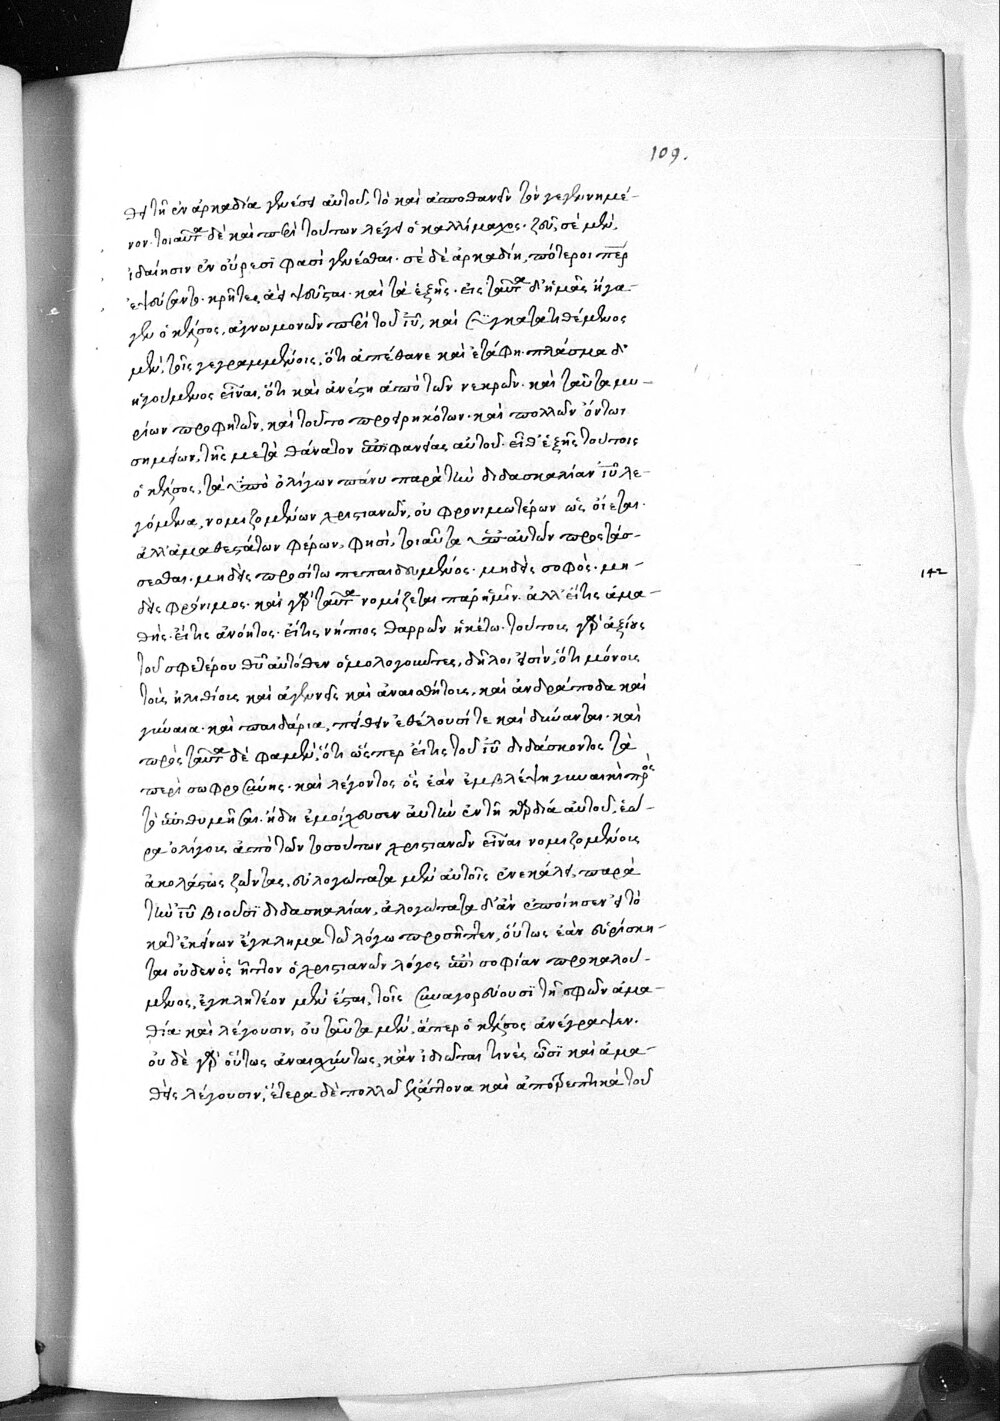 109.
θει τῇ ἐν ἀρκαδία γενέσει αὐτοῦ, τὸ καὶ ἀποθανεῖν τὸν γεγεννημέ-
νον· τοιαῦτα δὲ καὶ περὶ τούτων λέγει ὁ καλλίμαχος· ζεῦ, σὲ μὲν,
ἰδαίησιν ἐν οὔρεσϊ φασὶ γενέσθαι· σὲ δὲ ἀρκαδίη, πότεροι περ
ἐψεύσαντο· κρῆτες ἀεὶ ψεῦσται· καὶ τὰ ἑξῆς· εἰς ταῦτα δ' ἡμᾶς ἤγα-
γεν ὁ κέλσος, ἀγνωμονῶν περὶ τοῦ ἰῦ, καὶ συγκατατιθέμενος
μὲν, τοῖς γεγραμμένοις, ὅτι ἀπέθανε καὶ ἐτάφη· πλάσμα δ'
ἡγούμενος εἶναι, ὅτι καὶ ἀνέστη ἀπὸ τῶν νεκρῶν· καὶ ταῦτα μυ-
ρίων προφητῶν, καὶ τοῦτο προειρηκότων· καὶ πολλῶν ὄντων
σημείων, τῆς μετὰ θάνατον ἐπϊφανείας αὐτοῦ· εἶθ' ἑξῆς τούτοις
ὁ κέλσος, τὰ ὑπὸ ὀλίγων πάνυ παρὰ τὴν διδασκαλίαν ἰῦ λε-
γόμενα, νομιζομένων χριστιανῶν, οὐ φρονιμωτέρων ὡς οἴεται·
ἀλλ' ἀμαθεστάτων φέρων, φησὶ, τοιαῦτα ὑπ' αὐτῶν προστάσ-
σεσθαι· μηδεὶς προσίτω πεπαιδευμένος· μηδεὶς σοφὸς· μη-
δεὶς φρόνιμος· καὶ γὰρ ταῦτα νομίζεται παρ' ἡμῖν· ἀλλ' εἴτις ἀμα-
θὴς· εἴτις ἀνόητος· εἴτις νήπιος θαρρῶν ἡκέτω· τούτους γὰρ ἀξίους
τοῦ σφετέρου θῦ αὐτόθεν ὁμολογοῦντες, δῆλοι εἰσὶν, ὅτι μόνους
τοὺς ἠλιθίους καὶ ἀγενεῖς καὶ ἀναισθήτους, καὶ ἀνδράποδα καὶ
γύναια· καὶ παιδάρια, πείθειν ἐθέλουσί τε καὶ δύνανται· καὶ
πρὸς ταῦτα δέ φαμεν, ὅτι ὥσπερ εἴτις τοῦ ἰῦ διδάσκοντος τὰ
περὶ σωφροσύνης· καὶ λέγοντος ὃς ἐὰν ἐμβλέψη γυναικὶ πρὸς
τὸ ἐπιθυμῆσαι· ἤδη ἐμοίχευσεν αὐτὴν ἐν τῆ καρδία αὐτοῦ, ἑώ-
ρα ὀλίγους ἀπὸ τῶν τοσούτων χριστιανῶν εἶναι νομιζομένους
ἀκολάστως ζῶντας, εὐλογώτατα μὲν αὐτοῖς ἐνεκάλει, παρὰ
τὴν ἰῦ βιοῦσϊ διδασκαλίαν, ἀλογώτατα δ' ἂν ἐποίησεν εἰ τὸ
κατ' ἐκείνων ἔγκλημα τῶ λόγω προσῆπτεν, οὕτως ἐὰν εὑρίσκη-
ται οὐδενὸς ἧττον ὁ χριστιανῶν λόγος ἐπὶ σοφίαν προκαλού-
μενος, ἐγκλητέον μὲν ἔσται, τοῖς συναγορεύουσϊ τῆ σφῶν ἀμα-
θία καὶ λέγουσιν, οὐ ταῦτα μὲν, ἅπερ ὁ κέλσος ἀνέγραψεν.
οὐ δὲ γὰρ οὕτως ἀναισχύντως, κἂν ἰδιῶται τινὲς ὦσϊ καὶ ἀμα-
θεῖς λέγουσιν, ἕτερα δὲ πολλῶ ἐλάττονα καὶ ἀποτρεπτικὰ τοῦ
142